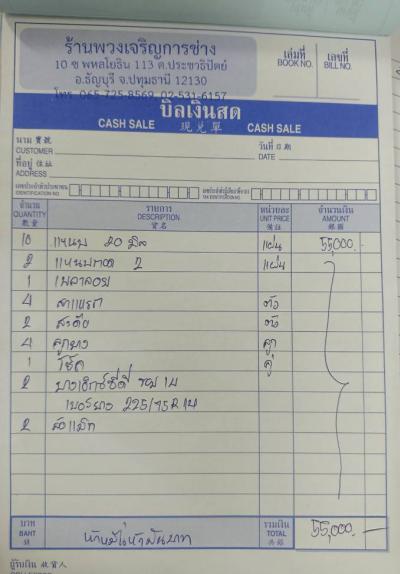 ร้านพวงเจริญการช่าง
10 ซ พหลโยธิน 113 ต.ประชาธิปัตย์
อ.ธัญบุรี จ.ปทุมธานี 12130
โทร. 065-725-8569, 02-531-6157
เล่มที่ เลขที่
BOOK NO. BILL NO.
บิลเงินสด
CASH SALE 現兑單 CASH SALE
นาม 寶號 วันที่ 日期
CUSTOMER DATE
ที่อยู่ 住址
ADDRESS
เลขประจำตัวประชาชน
IDENTIFICATION NO
จำนวน รายการ หน่วยละ จำนวนเงิน
QUANTITY DESCRIPTION UNIT PRICE AMOUNT
數量 貨名 備註 銀圓
10 แหนบ 20 มิล แผ่น 55,000.-
2 แหนบทอด 2 แผ่น
1 เพลาลอย
4 สาแหรก ตัว
2 สะดือ ตัว
4 ลูกยาง ลูก
1 โช๊ค คู่
2 ขอบ 14
เบอร์ยาง 225/75R14
2
บาท หาหมื่นห้าพันบาท รวมเงิน 55,000.-
BAHT TOTAL
銖 共銀
ผู้รับเงิน 收貨人